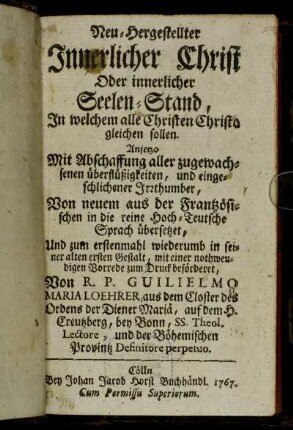 Neu-Hergestellter
Innerlicher Christ
Oder innerlicher
Seelen-Stand,
In welchem alle Christen Christo
gleichen sollen.
Anjetzo
Mit Abschaffung aller zugewach-
senen überflüßigkeiten, und einge-
schlichener Irrthumber,
Von neuem aus der Frantzösi-
schen in die reine Hoch-Teutsche
Sprach übersetzet,
Und zum erstenmahl wiederumb in sei-
ner alten ersten Gestalt, mit einer nothwen-
digen Vorrede zum Druck beförderet,
Von R. P. GUILIELMO
MARIA LOEHRER, aus dem Closter des
Ordens der Diener Mariä, auf dem H.
Creutzberg, bey Bonn, SS. Theol.
Lectore, und der Böhemischen
Provintz Definitore perpetuo.
Cölln
Bey Johan Jacob Horst Buchhändl. 1767.
Cum Permissu Superiorum.